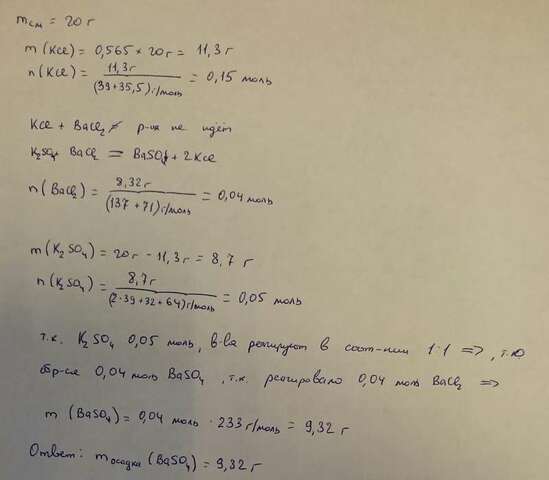 mсм = 20 г
m (KCl) = 0,565 × 20 г = 11,3 г
n (KCl) = 11,3 г / (39+35,5) г/моль = 0,15 моль
KCl + BaCl₂ ≠ р-ия не идёт
K₂SO₄ + BaCl₂ = BaSO₄↓ + 2KCl
n (BaCl₂) = 8,32 г / (137 + 71) г/моль = 0,04 моль
m (K₂SO₄) = 20 г - 11,3 г = 8,7 г
n (K₂SO₄) = 8,7 г / (2·39+32+64) г/моль = 0,05 моль
т.к. K₂SO₄ 0,05 моль, в-ва реагируют в соот-нии 1:1 =>, то
обр-ся 0,04 моль BaSO₄, т.к. реагировало 0,04 моль BaCl₂ =>
m (BaSO₄) = 0,04 моль · 233 г/моль = 9,32 г
Ответ: mосадка (BaSO₄) = 9,32 г